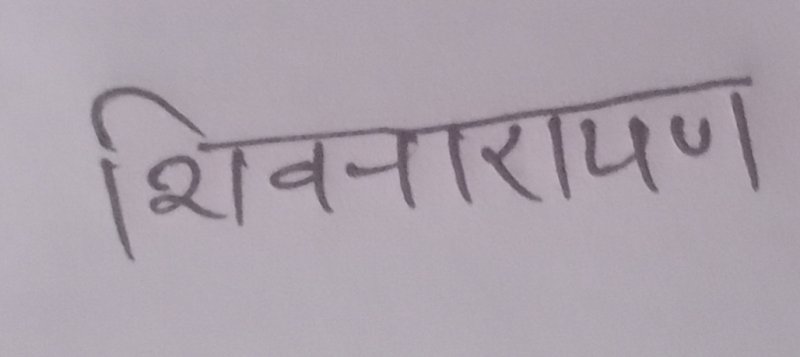 शिवनारायण